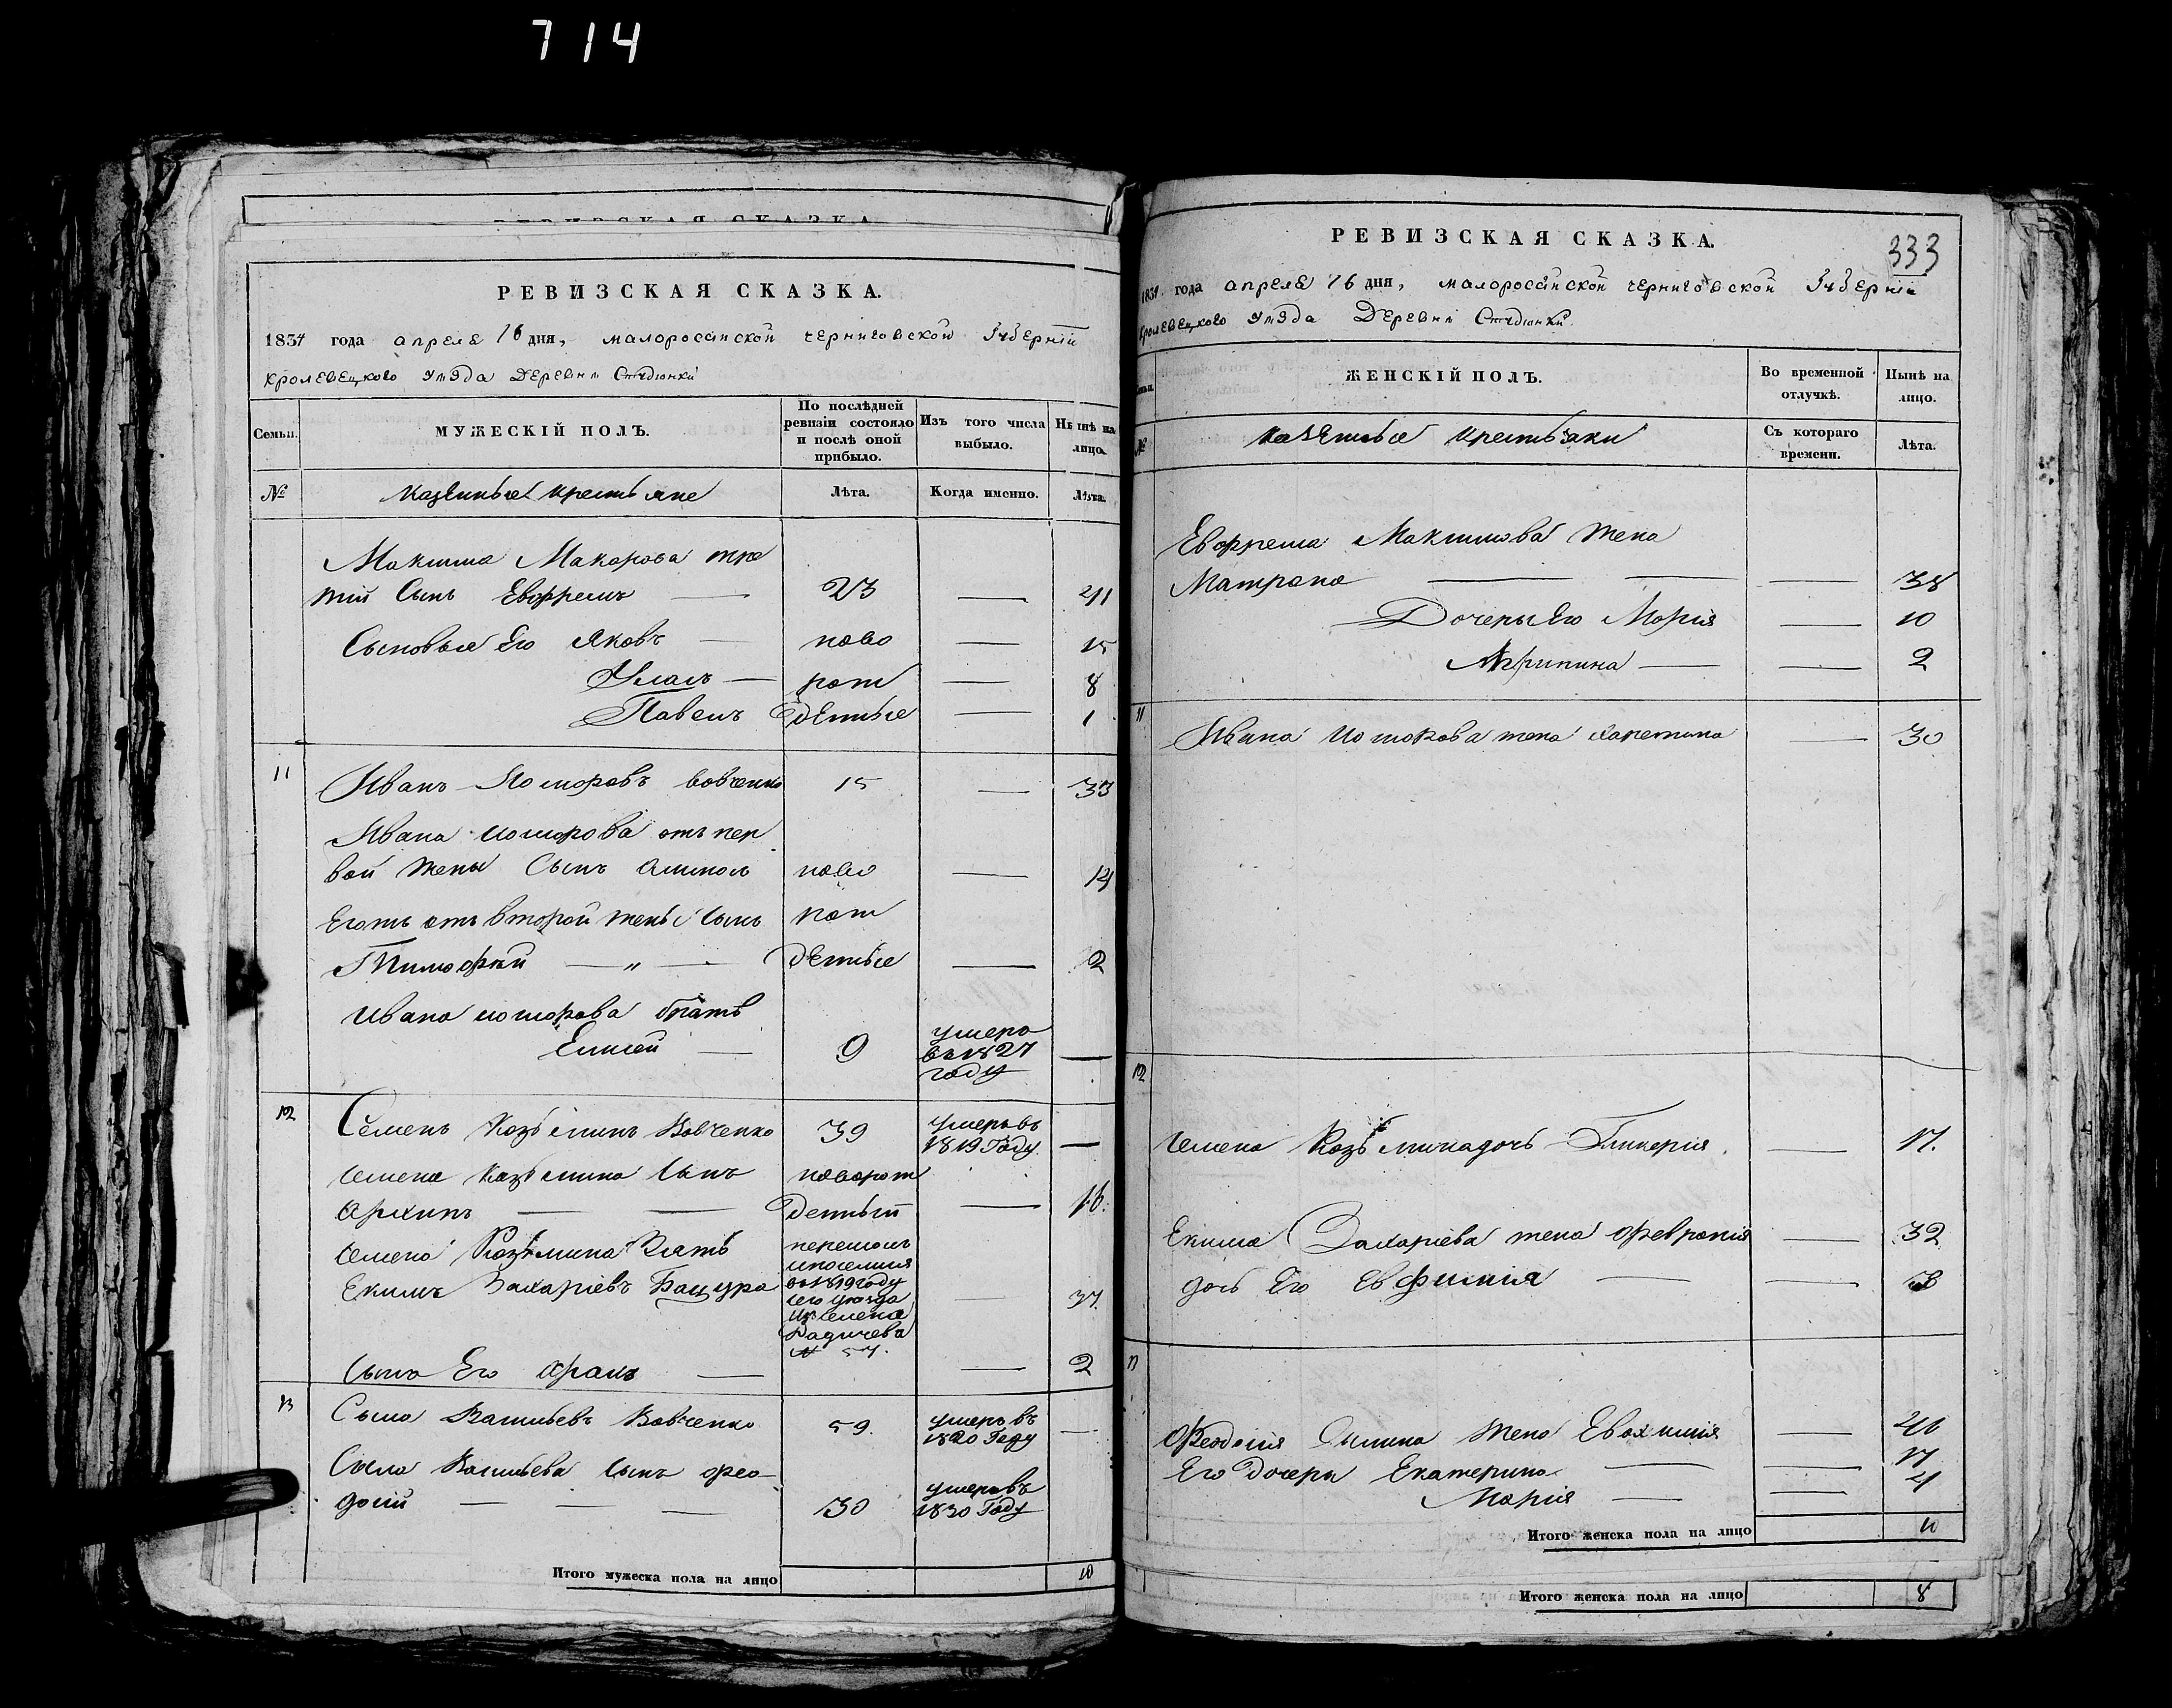 714
РЕВИЗСКАЯ СКАЗКА.
1834 года апреля 16 дня, малоросійской черниговской Губерніи
Кролевецкого уезда Деревни Студіонки
Семьи.
МУЖЕСКІЙ ПОЛЪ.
По послѣдней ревизіи состояло и послѣ оной прибыло.
Изъ того числа выбыло.
Нынѣ на лицо.
№
Казенные крестьяне
Лѣта.
Когда именно.
Лѣта.
Максима Макарова тре
тій Сынъ Евфремъ — 23 — 41
Сыновья Его Яковъ — ново — 15
Уласъ — рож — 8
Павелъ денные — 1
11 Иванъ Вовченко 15 — 33
Ивана отъ пер
вой жены Сынъ ново — 14
Его отъ второй жены Сынъ рож
Тимофей — „ — денные — 2
Ивана братъ
Елисей — 9 умеръ въ 1827 году —
12 Семенъ Козьминъ Вовченко 39 умеръ въ 1819 Году —
Семена Козьмина Сынъ новорож
Архипъ — — денный — 16.
Семена Козьмина Зять
Екимъ Захаріевъ Бацура
перешолъ
в 1819 году
сего уезда
из селения
Радичева
№ 57.
— 37.
Сынъ Его — — 2
13 Сыла Васильевъ Вовченко 59. умеръ въ 1820 Году —
Сыла Васильева Сынъ Фео-
досій — — — 30 умеръ въ 1830 Году
Итого мужеска пола на лицо 10
РЕВИЗСКАЯ СКАЗКА.
333
1834 года апреля 16 дня, малоросійской черниговской Губерніи
Кролевецкого уезда Деревни Студіонки.
ЖЕНСКІЙ ПОЛЪ.
Во временной отлучкѣ.
Нынѣ на лицо.
№
Казенные крестьянки
Съ котораго времени.
Лѣта.
Евфрема Максимова жена
Матрона — — — 38
Дочеры Его Марія — 10
Агрипина — — 2
11
Ивана жена — 30
12
Семена Козьмина дочь Гликерія. — 17.
Екима Захаріева жена Февронія — 32
дочь Его Евфимия — — 3
13
Феодосія Сылина жена Евфимия — 40
Его дочеры Екатерина — — 17
Марія — — 4
Итого женска пола на лицо 10
Итого женска пола на лицо 8